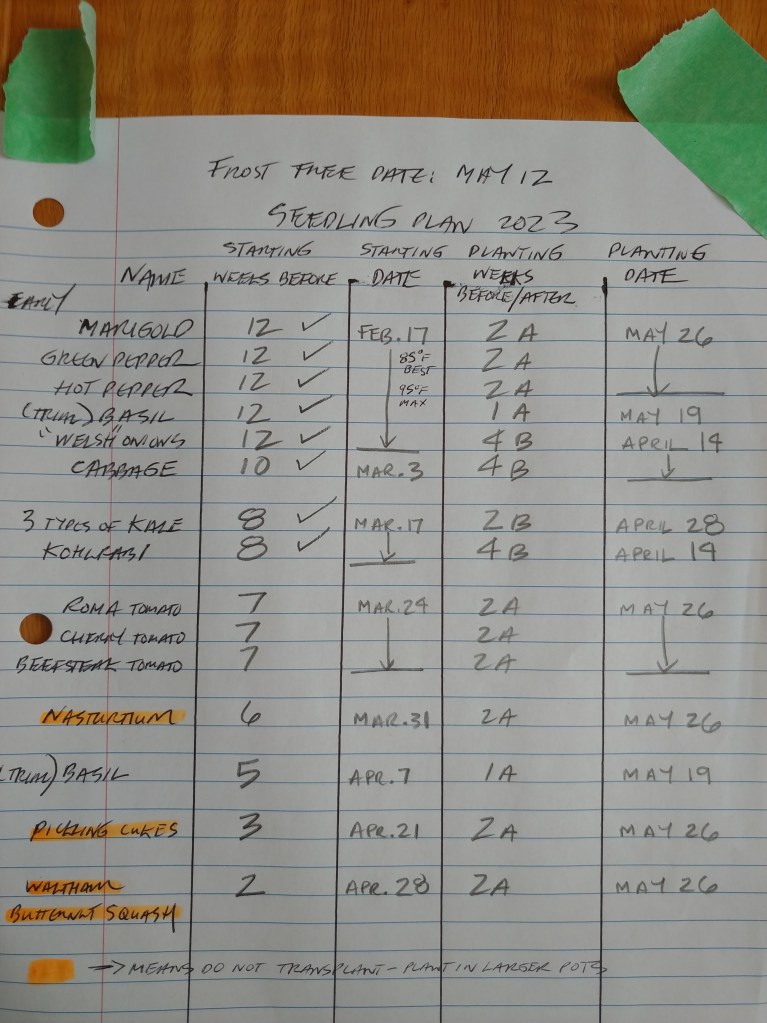 FROST FREE DATE: MAY 12
SEEDLING PLAN 2023
NAME STARTING WEEKS BEFORE STARTING DATE PLANTING WEEKS BEFORE/AFTER PLANTING DATE
EARLY
MARIGOLD 12 ✓ FEB. 17 2 A MAY 26
GREEN PEPPER 12 ✓ 85°F BEST 2 A
HOT PEPPER 12 ✓ 95°F MAX 2 A
(TRIM) BASIL 12 ✓ 1 A MAY 19
"WELSH" ONIONS 12 ✓ 4 B APRIL 14
CABBAGE 10 ✓ MAR. 3 4 B
3 TYPES OF KALE 8 ✓ MAR. 17 2 B APRIL 28
KOHLRABI 8 ✓ 4 B APRIL 14
ROMA TOMATO 7 MAR. 24 2 A MAY 26
CHERRY TOMATO 7 2 A
BEEFSTEAK TOMATO 7 2 A
NASTURTIUM 6 MAR. 31 2 A MAY 26
(TRIM) BASIL 5 APR. 7 1 A MAY 19
PICKLING CUKES 3 APR. 21 2 A MAY 26
WALTHAM 2 APR. 28 2 A MAY 26
BUTTERNUT SQUASH
→ MEANS DO NOT TRANSPLANT - PLANT IN LARGER POTS